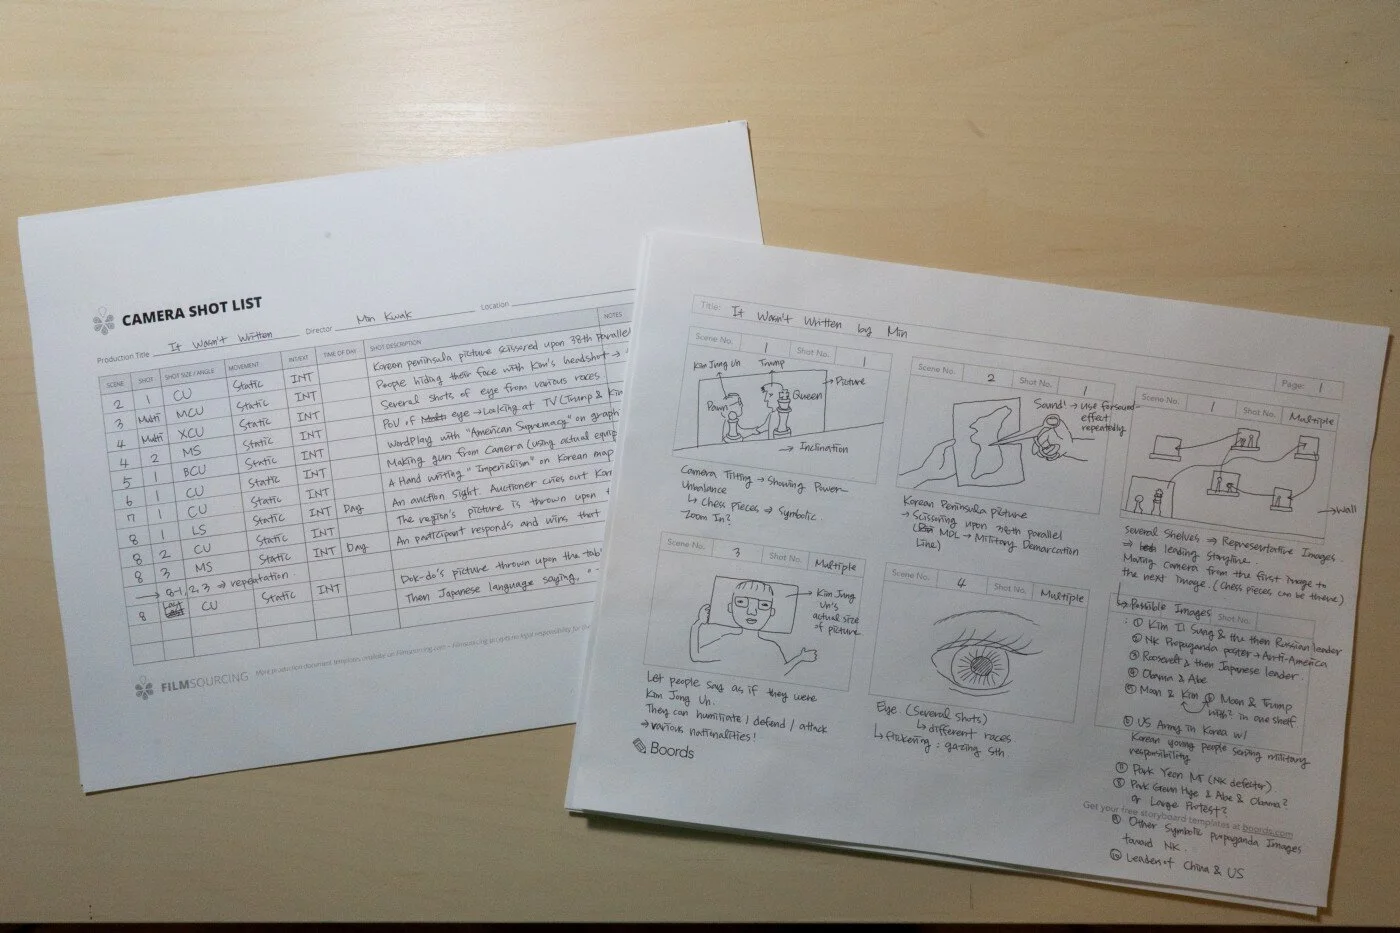 CAMERA SHOT LIST
Production Title It Wasn't Written Director Min Kwak Location
SCENE SHOT SHOT SIZE / ANGLE MOVEMENT INT/EXT TIME OF DAY SHOT DESCRIPTION NOTES
2 1 CU Static INT Korean peninsula picture scissored upon 38th parallel
3 Multi MCU Static INT People hiding their face with Kim's headshot →
4 Multi XCU Static INT Several shots of eye from various races
4 2 MS Static INT PoV of eye → Looking at TV (Trump & Kim
5 1 BCU Static INT WordPlay with "American Supremacy" on graph
6 1 CU Static INT Making gun from Camera (using actual equip
7 1 CU Static INT A Hand writing "Imperialism" on Korean map
8 1 LS Static INT Day An auction sight. Auctioner cries out Kor
8 2 CU Static INT The region's picture is thrown upon
8 3 MS Static INT Day An participant responds and wins that
→ 8-1, 2, 3 → repeatation.
8 Last CU Static INT Dok-do's picture thrown upon the tab
Then Japanese language saying, "
FILMSOURCING More production document templates available on Filmsourcing.com – Filmsourcing accepts no legal responsibility for
Title: It Wasn't Written by Min
Page: 1
Scene No. 1 Shot No. 1
Kim Jong Un Trump
Pawn
Queen
→ Picture
→ Inclination
Camera Tilting → Showing Power-
Unbalance
↳ Chess Pieces → Symbolic
Zoom In?
Scene No. 2 Shot No. 1
Sound! → Use for sound
effect
repeatedly
Korean Peninsula picture
→ Scissoring upon 38th parallel
( MDL → Military Demarcation
Line)
Scene No. 1 Shot No. Multiple
→ Wall
Several Shelves ⇒ Representative Images
⇒ leading storyline.
Moving Camera from the first image to
the next image. (Chess pieces can be theme)
Scene No. 3 Shot No. Multiple
→ Kim Jung
Un's
actual size
of picture
Let people say as if they were
Kim Jong Un.
They can humiliate / defend / attack
→ various nationalities!
Boords
Scene No. 4 Shot No. Multiple
Eye. (Several Shots)
↳ different races
↳ flickering : gazing sth.
Shot No.
↳ Possible Images
: ① Kim Il Sung & the then Russian leader
② NK Propaganda poster → Anti-America
③ Roosevelt & then Japanese leader.
④ Obama & Abe
⑤ Moon & Kim Moon & Trump
in one shelf
US Army in Korea w/
Korean young people serving military
responsibility
Park Yeon Mi (NK defector)
⑧ Park Geun Hye & Abe & Obama?
or Large Protest?
Get your free storyboard templates at boords.com
⑨ Other Symbolic propaganda Images
toward NK.
⑩ Leader of China & US